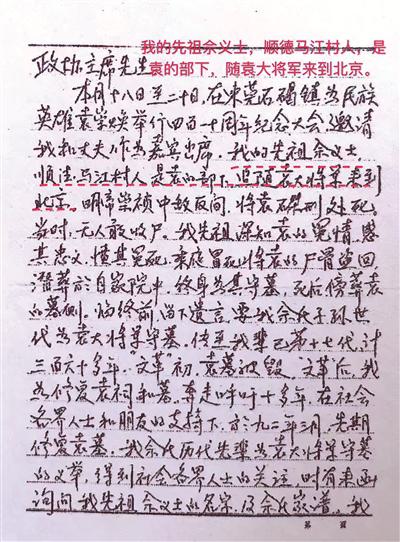 我的先祖佘义士，顺德马江村人，是
袁的部下，随袁大将军来到北京。
政协主席先生
本月十八日至二十日，在东莞石碣镇为民族
英雄袁崇焕举行四百一十周年纪念大会，邀请
我和丈夫作为嘉宾出席。我的先祖佘义士，
顺德马江村人，是袁的部下，追随袁大将军来到
北京。明帝崇祯中敌反间，将袁磔刑处死。
当时，无人敢收尸。我先祖深知袁的冤情，感
其忠义，愤其冤死，乘夜冒死将袁的尸骨盗回
潜葬於自家院中，终身为其守墓，死后傍葬袁
的墓侧。临终前，留下遗言，要我佘氏子孙世
代为袁大将军守墓。传至我辈已第十七代，计
三百六十多年。“文革”初，袁墓被毁。文革后，我
为修复袁祠和墓，奔走呼吁十多年，在社会
各界人士和朋友的支持下，于九二年三月，先期
修复袁墓。我佘氏历代先辈为袁大将军守墓
的义举，得到社会各界人士的关注，时有来函
询问我先祖佘义士的名字，及佘氏家谱。我
第 页